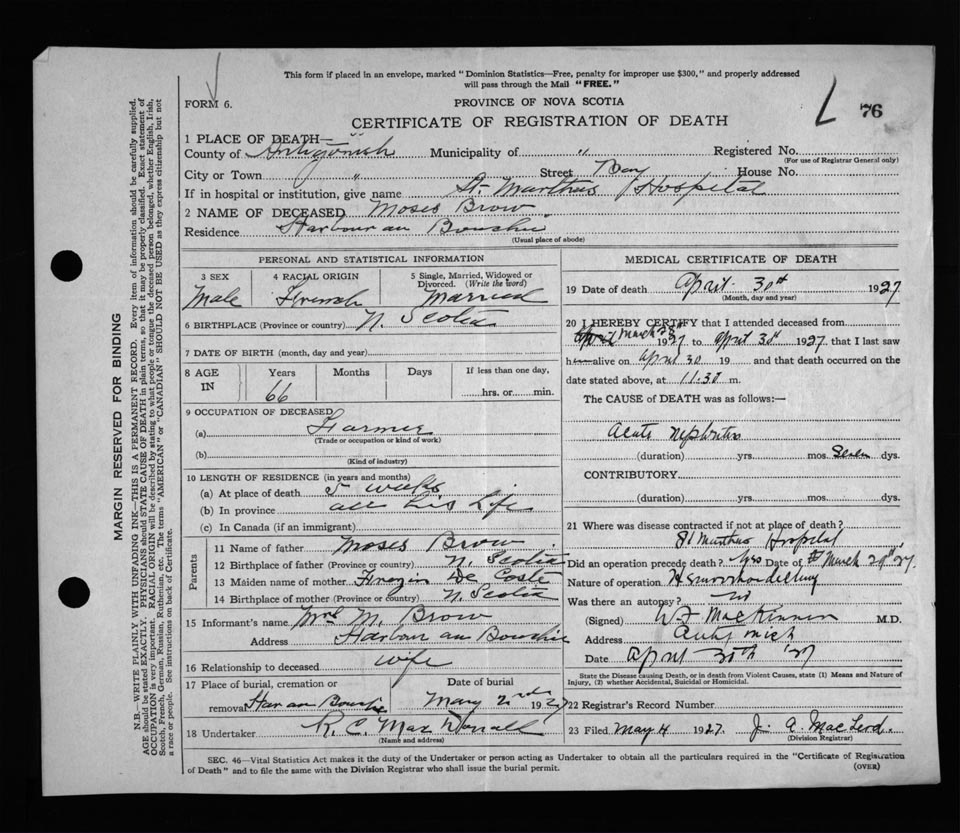 This form if placed in an envelope, marked "Dominion Statistics—Free, penalty for improper use $300," and properly addressed
will pass through the Mail "FREE."
FORM 6.
PROVINCE OF NOVA SCOTIA
L 76
CERTIFICATE OF REGISTRATION OF DEATH
1 PLACE OF DEATH—
County of Antigonish Municipality of " Registered No.
(For use of Registrar General only)
City or Town " Street Bay House No.
If in hospital or institution, give name St. Marthas Hospital
2 NAME OF DECEASED Moses Brow
Residence Harbour au Bouchie
(Usual place of abode)
PERSONAL AND STATISTICAL INFORMATION
3 SEX 4 RACIAL ORIGIN 5 Single, Married, Widowed or
Divorced. (Write the word)
Male French Married
6 BIRTHPLACE (Province or country) N. Scotia
7 DATE OF BIRTH (month, day and year)
8 AGE IN Years Months Days If less than one day,
66 hrs. or min.
9 OCCUPATION OF DECEASED
(a) Farmer
(Trade or occupation or kind of work)
(b)
(Kind of industry)
10 LENGTH OF RESIDENCE (in years and months)
(a) At place of death 5 weeks
(b) In province all his life
(c) In Canada (if an immigrant)
Parents
11 Name of father Moses Brow
12 Birthplace of father (Province or country) N. Scotia
13 Maiden name of mother De Coste
14 Birthplace of mother (Province or country) N. Scotia
15 Informant's name Mrs M. Brow
Address Harbour au Bouchie
16 Relationship to deceased wife
17 Place of burial, cremation or Date of burial
removal Har au Bouche May 2nd 1927
18 Undertaker R. C. MacDonald
(Name and address)
MEDICAL CERTIFICATE OF DEATH
19 Date of death April 30th 1927
(Month, day and year)
20 I HEREBY CERTIFY that I attended deceased from
March 28 1927 to April 30th 1927, that I last saw
him alive on April 30 19 and that death occurred on the
date stated above, at 11.30 m.
The CAUSE of DEATH was as follows:—
Acute Nephritis
(duration) yrs. mos. Seven dys.
CONTRIBUTORY
(duration) yrs. mos. dys.
21 Where was disease contracted if not at place of death?
St Marthas Hospital
Did an operation precede death? Yes Date of March 29th 27.
Nature of operation
Was there an autopsy? no
(Signed) W. F. MacKinnon M.D.
Address Antigonish
Date April 30th '27
State the Disease causing Death, or in death from Violent Causes, state (1) Means and Nature of
Injury, (2) whether Accidental, Suicidal or Homicidal.
22 Registrar's Record Number
23 Filed May 4 1927. J. A. MacLeod.
(Division Registrar)
SEC. 46—Vital Statistics Act makes it the duty of the Undertaker or person acting as Undertaker to obtain all the particulars required in the "Certificate of Registration
of Death" and to file the same with the Division Registrar who shall issue the burial permit. (OVER)
MARGIN RESERVED FOR BINDING
N.B.—WRITE PLAINLY WITH UNFADING INK—THIS IS A PERMANENT RECORD. Every item of information should be carefully supplied.
AGE should be stated EXACTLY. PHYSICIANS should STATE CAUSE OF DEATH in plain terms, so that it may be properly classified. Exact statement of
OCCUPATION is very important. RACIAL ORIGIN will be described by stating to what people or tongue the deceased person belonged, whether English, Irish,
Scotch, French, German, Russian, Ruthenian, etc. The terms "AMERICAN" or "CANADIAN" SHOULD NOT BE USED as they express citizenship but not
a race or people. See instructions on back of Certificate.